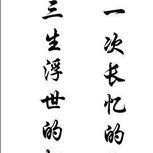 一次长忆的
三生浮世的